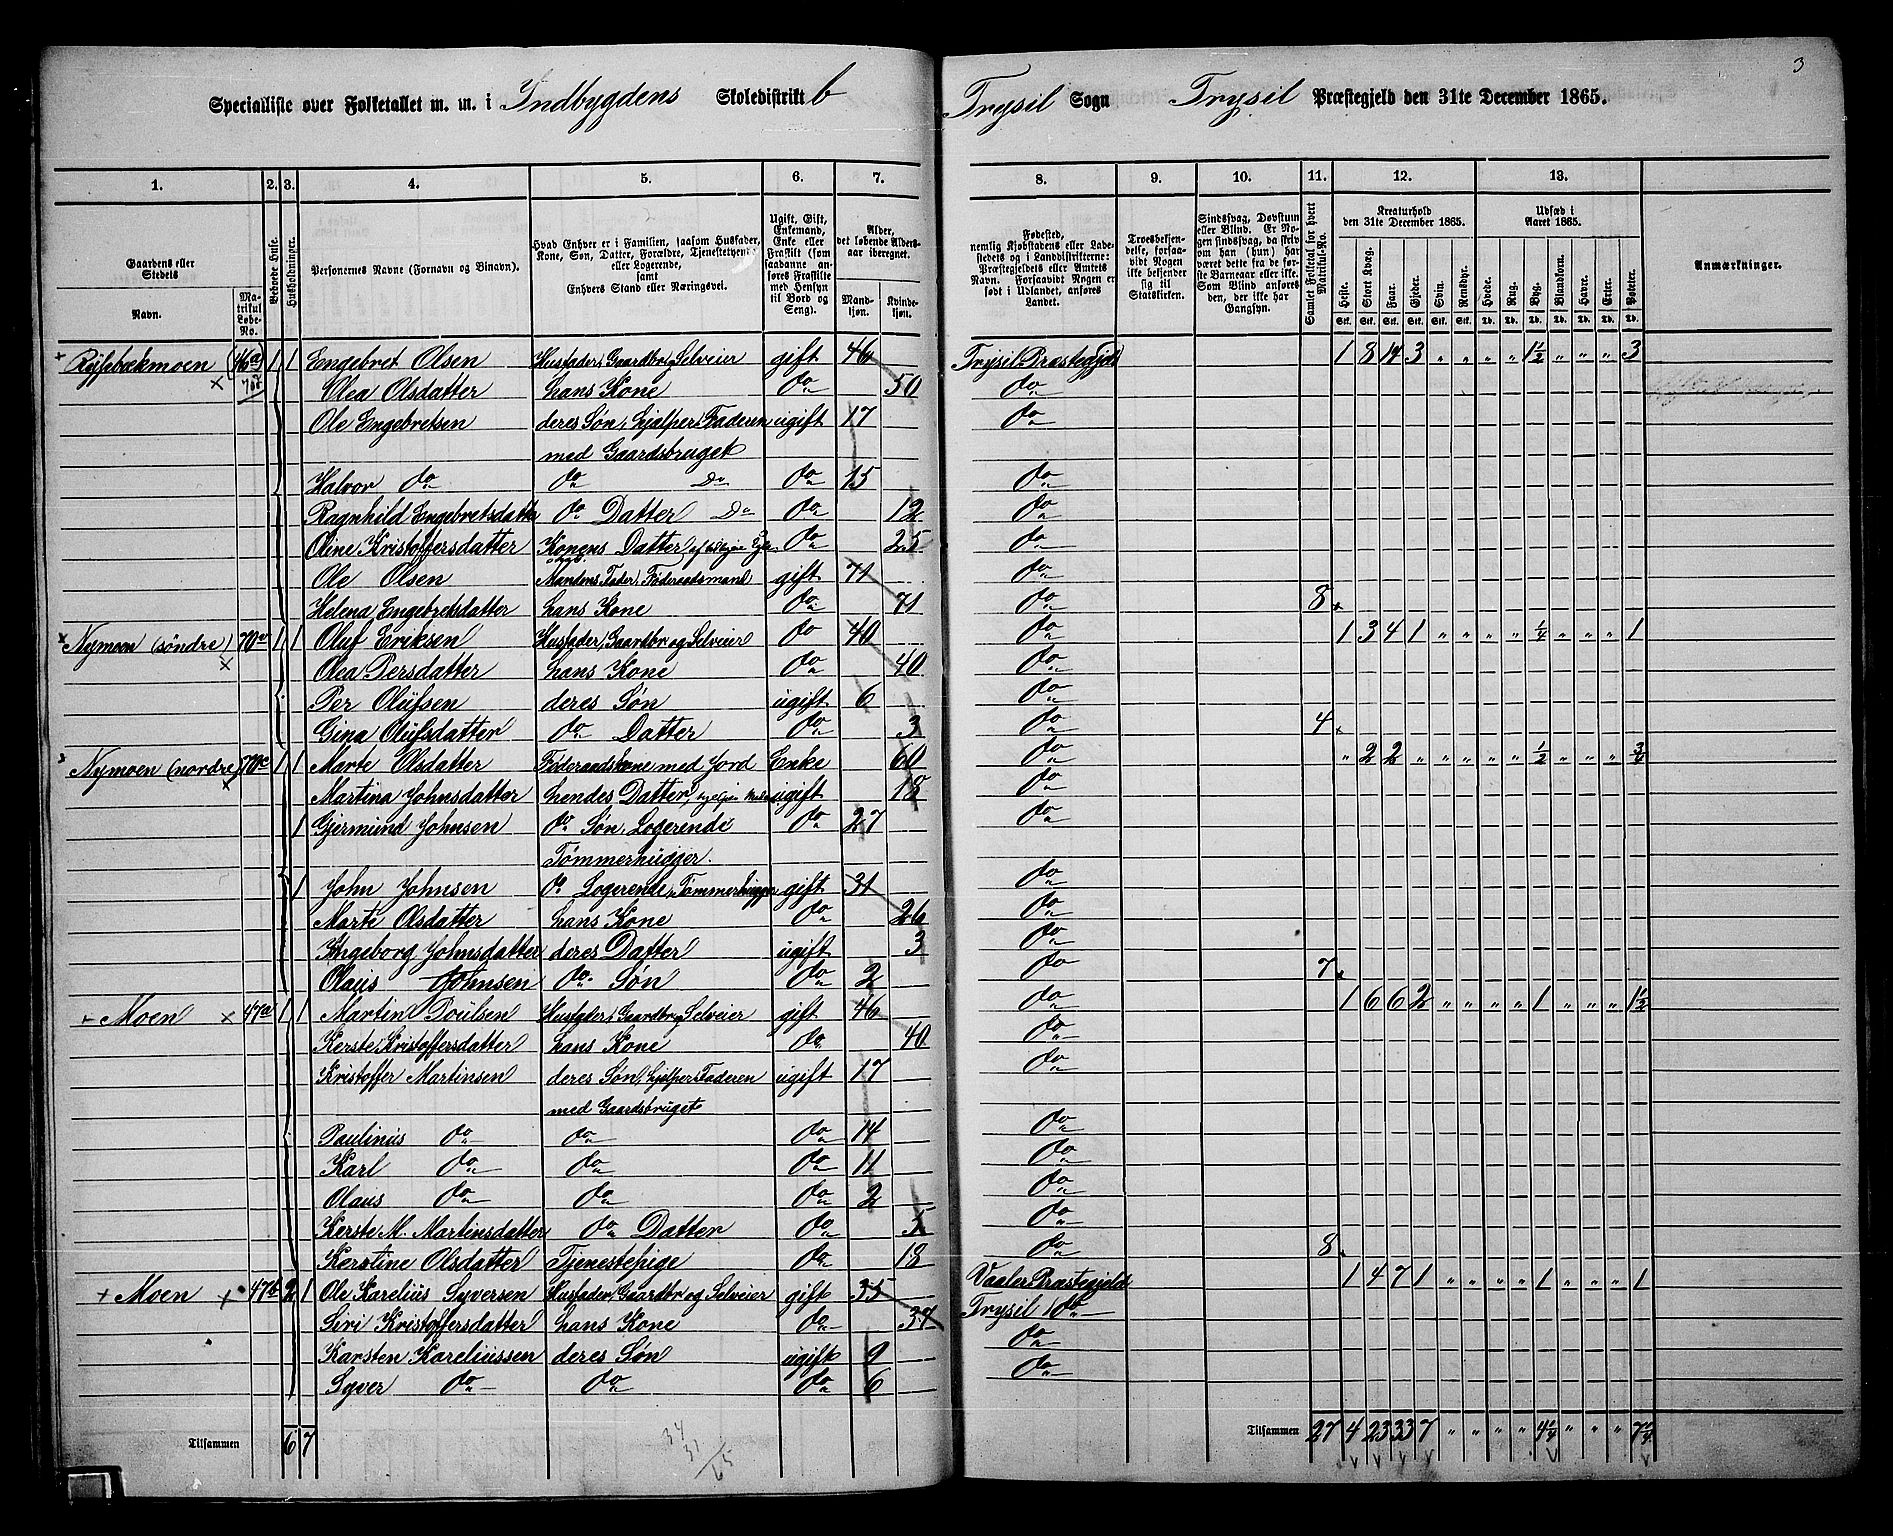 3
Specialliste over Folketallet m. m. i Indbygdens Skoledistrikt b Trysil Sogn Trysil Præstegjeld den 31te December 1865.
1. 2. 3. 4. 5. 6. 7. 8. 9. 10. 11. 12. 13.
Gaardens eller Stedets Navn. Matrikul Løbe-No. Bebodde Huse. Husholdninger. Personernes Navne (Fornavn og Binavn). Hvad Enhver er i Familien, saasom Husfader, Kone, Søn, Datter, Forældre, Tjenestetyende eller Logerende, samt Enhvers Stand eller Næringsvei. Ugift, Gift, Enkemand, Enke eller Fraskilt (som saadanne anføres Fraskilte med Hensyn til Bord og Seng). Alder, det løbende Aldersaar iberegnet. Mandkjøn. Kvindekjøn. Fødested, nemlig Kjøbstadens eller Ladestedets og i Landdistrikterne: Præstegjeldets eller Amtets Navn. Forsaavidt Nogen er født i Udlandet, anføres Landet. Troesbekjendelse, forsaavidt Nogen ikke bekjender sig til Statskirken. Sindssvag, Døvstum eller Blind. Er Nogen sindssvag, da skriv om han (hun) har været dette fra de første Barneaar eller ikke. Som Blind anføres den, der ikke har Gangsyn. Samlet Folketal for hvert Matrikul-No. Kreaturhold den 31te December 1865. Udsæd i Aaret 1865. Anmærkninger.
Heste. Stort Kvæg. Faar. Gjeder. Svin. Rensdyr. Hvede. Rug. Byg. Blandkorn. Havre. Erter. Poteter.
Stk. Stk. Stk. Stk. Stk. Stk. Td. Td. Td. Td. Td. Td. Td.
46a 1 1 Engebret Olsen Husfader, Gaardbr. Selveier gift 46 Trysil Præstegjeld 1 8 14 3 " " " " 1½ " " " 3
Olea Olsdatter hans Kone do 50 do
Ole Engebretsen deres Søn, hjælper Faderen ugift 17 do
med Gaardsbruget
Halvor do do Do do 15 do
Ragnhild Engebretsdatter do Datter Do do 12 do
Oline Kristoffersdatter Konens Datter do 25 do
Ole Olsen Mandens Fader, Føderaadsmand gift 71 do
Helena Engebretsdatter hans Kone do 71 do 8
Nymoen (søndre) 70 1 1 Oluf Eriksen Husfader, Gaardbr og Selveier do 40 do 1 3 4 1 " " " " ¼ " " " 1
Olea Persdatter hans Kone do 40 do
Per Olüfsen deres Søn ugift 6 do
Gina Olüfsdatter do Datter do 3 do 4
Nymoen (nordre) 70c 1 1 Marte Olsdatter Føderaadskone med Jord Enke 60 do " 2 2 " " " " " ½ " " " ¾
Martina Johnsdatter hendes Datter, ugift 18 do
1 Gjermund Johnsen do Søn, Logerende do 27 do
Tømmerhugger
1 John Johnsen do Logerende, Tømmerhugger gift 31 do
Marte Olsdatter hans Kone do 26 do
Ingeborg Johnsdatter deres Datter ugift 3 do
Olaus Johnsen do Søn do 2 do 7
Moen 47a 1 1 Martin Poulsen Husfader, Gaardbr. Selveier gift 46 do 1 6 6 2 " " " " 1 " " " 1½
Kerste Kristoffersdatter hans Kone do 40 do
Kristoffer Martinsen deres Søn, hjelper Faderen ugift 17 do
med Gaardsbruget
Paulinus do do do 14 do
Karl do do do 11 do
Olaus do do do 2 do
Kerste M. Martinsdatter do Datter do 5 do
Kerstine Olsdatter Tjenestepige do 18 do 8
Moen 47b 2 1 Ole Karelius Syversen Husfader, Gaardbr og Selveier gift 35 Vaaler Præstegjeld 1 4 7 1 " " " " 1 " " " 1
Siri Kristoffersdatter hans Kone do 37 Trysil do
Karsten Kareliussen deres Søn ugift 9 do
Syver do do do 6 do
Tilsammen 6 7 Tilsammen 27 4 23 33 7 " " " " 4¼ " " " 7¼
34
31
65